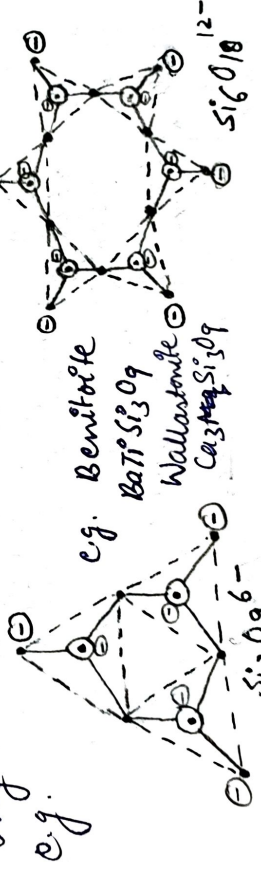 e.g.
Si₃O₉⁶⁻
e.g. Benitoite
BaTiSi₃O₉
Wallastonite
Ca₃Si₃O₉
Si₆O₁₈¹²⁻